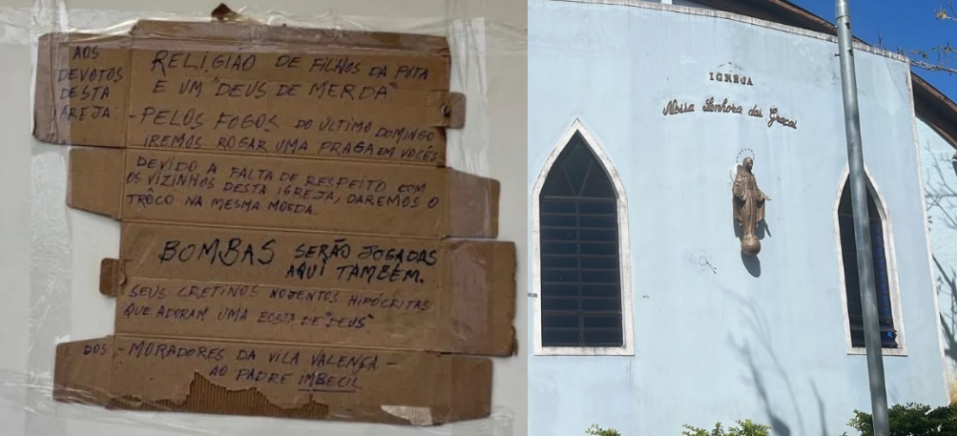 AOS
DEVOTOS
DESTA
IGREJA:
RELIGIAO DE FILHOS DA PUTA
E UM "DEUS DE MERDA"
- PELOS FOGOS DO ÚLTIMO DOMINGO
IREMOS ROGAR UMA PRAGA EM VOCÊS
DEVIDO A FALTA DE RESPEITO COM
OS VIZINHOS DESTA IGREJA, DAREMOS O
TRÔCO NA MESMA MOEDA.
BOMBAS SERÃO JOGADAS
AQUI TAMBÉM.
SEUS CRETINOS NOJENTOS HIPÓCRITAS
QUE ADORAM UMA BOSTA DE "DEUS"
DOS - MORADORES DA VILA VALENÇA -
AO PADRE IMBECIL
IGREJA
Nossa Senhora das Graças